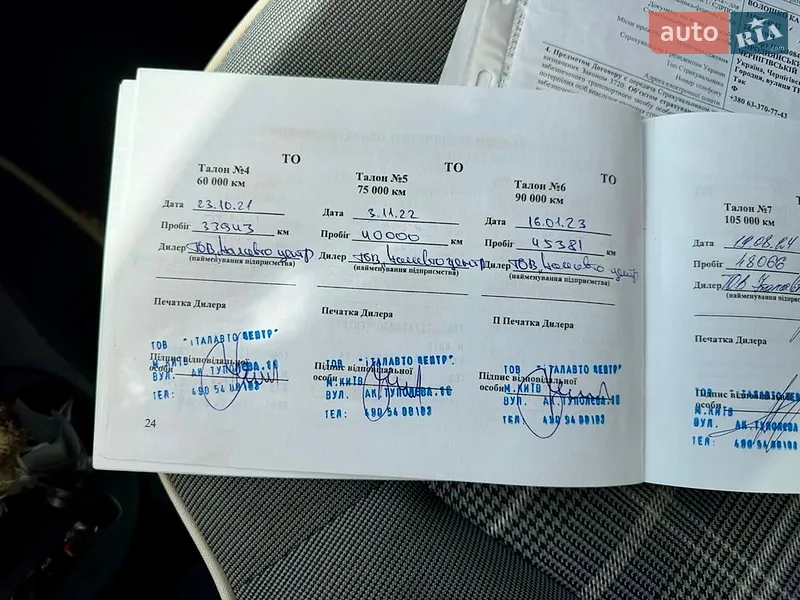 auto RIA.com
ВОЛОШКО КА
4. Предметом Договору є передача Страхувальником
Україна, Чернігівсь
Городня, вулиця
Так
Ф
+380 63-370-77-43
Адреса електронної пошти
Номер телефону
ТО
Талон №4
60 000 км
Дата 23.10.21
Пробіг 33943 км
Дилер ТОВ "Італавто центр
(найменування підприємства)
Печатка Дилера
ТОВ "ІТАЛАВТО ЦЕНТР"
Підпис відповідальної
особи
М.КИЇВ
ВУЛ. АК.ТУПОЛЄВА.
ТЕЛ: 490 54 00
24
ТО
Талон №5
75 000 км
Дата 3.11.22
Пробіг 40000 км
Дилер ТОВ "Італавто центр
(найменування підприємства)
Печатка Дилера
ТОВ "ІТАЛАВТО ЦЕНТР"
Підпис відповідальної
особи
М.КИЇВ
ВУЛ. АК.ТУПОЛЄВА.
ТЕЛ: 490 54 00
ТО
Талон №6
90 000 км
Дата 16.01.23
Пробіг 45381 км
Дилер ТОВ "Італавто центр
(найменування підприємства)
П Печатка Дилера
ТОВ "ІТАЛАВТО ЦЕНТР"
Підпис відповідальної
особи
М.КИЇВ
ВУЛ. АК.ТУПОЛЄВА.
ТЕЛ: 490 54 00
Талон №7
105 000 км
Дата 19.08.24
Пробіг 48066
Дилер ТОВ
(найменування
Печатка Дилера
ТОВ "ІТАЛАВТО ЦЕН
Підпис відповідальної
особи
М.КИЇВ
ВУЛ. АК.ТУПОЛЄВА
ТЕЛ: 490 54 00